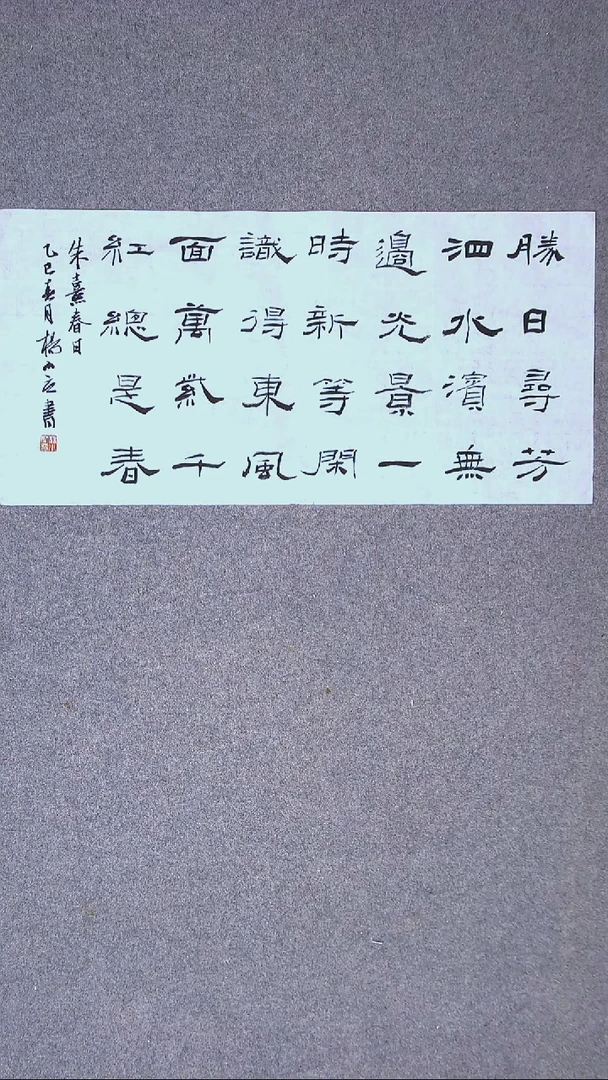 勝日尋芳
泗水濱無
邊光景一
時新等閑
識得東風
面萬紫千
紅總是春
朱熹春日
乙巳春月
書